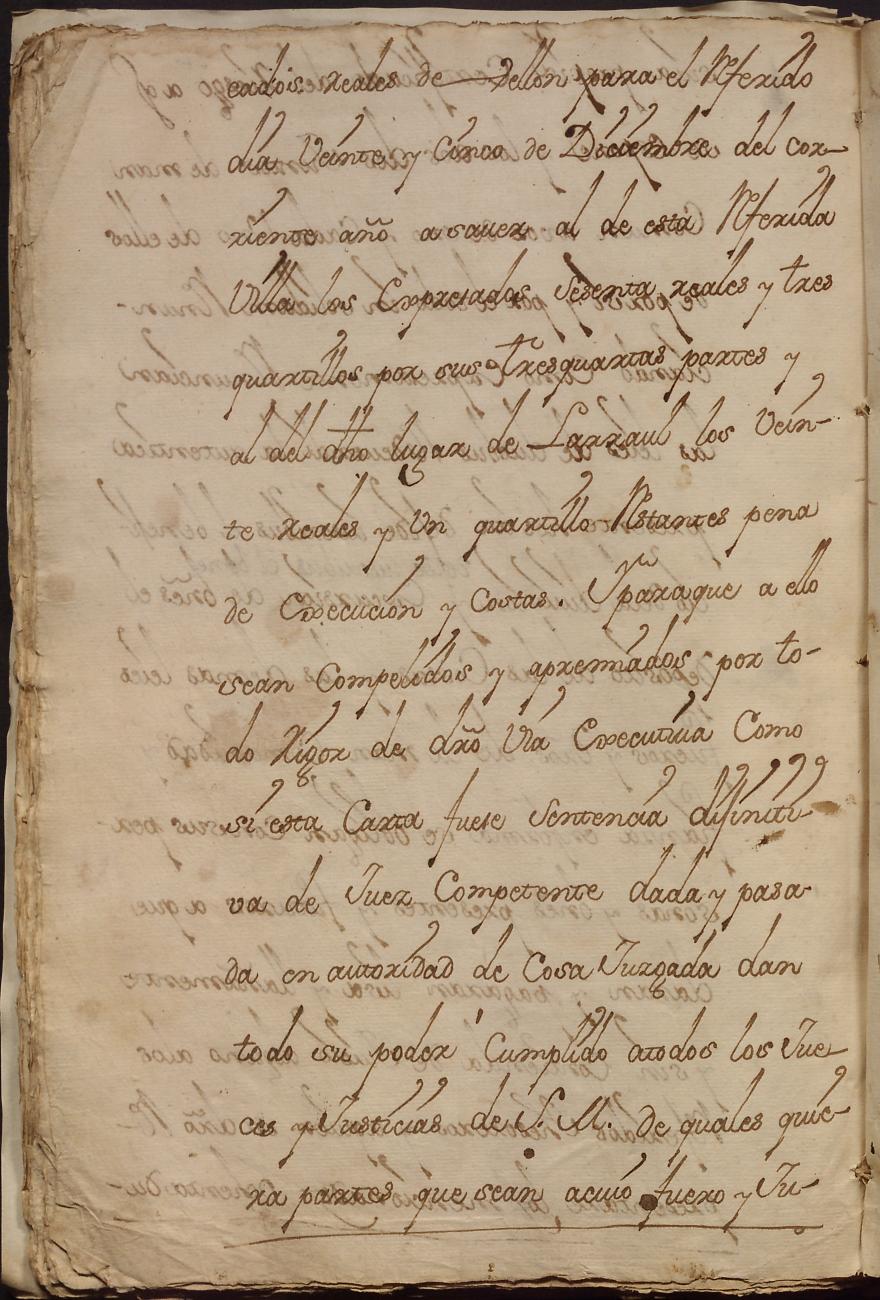 cados reales de Vellon para el Rferido
dia Veinte y Cinco de Diciembre del cor-
riente año a saver al de esta Rferida
Villa los Expresados Sesenta reales y tres
quartillos por sus tres quartas partes y
al del dho lugar de Larraul los Vein-
te reales y Un quartillo Rstantes pena
de Execucion y Costas. Y paraque a ello
sean Compelidos y apremiados por to-
do Rigor de dro Via Executiva Como
si esta Carta fuese Sentencia difiniti-
va de Juez Competente dada y pasa-
da en autoridad de Cosa Juzgada dan
todo su poder Cumplido atodos los Jue-
ces y Justicias de S. M. de quales quie-
ra partes que sean, acuio fuero y Ju-